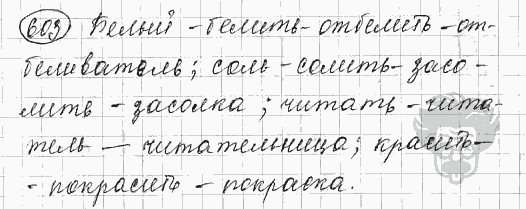 603 Белый - белить - отбелить - от-
беливатель; соль - солить - засо-
лить - засолка; читать - чита-
тель — читательница; красить -
- покрасить - покраска.